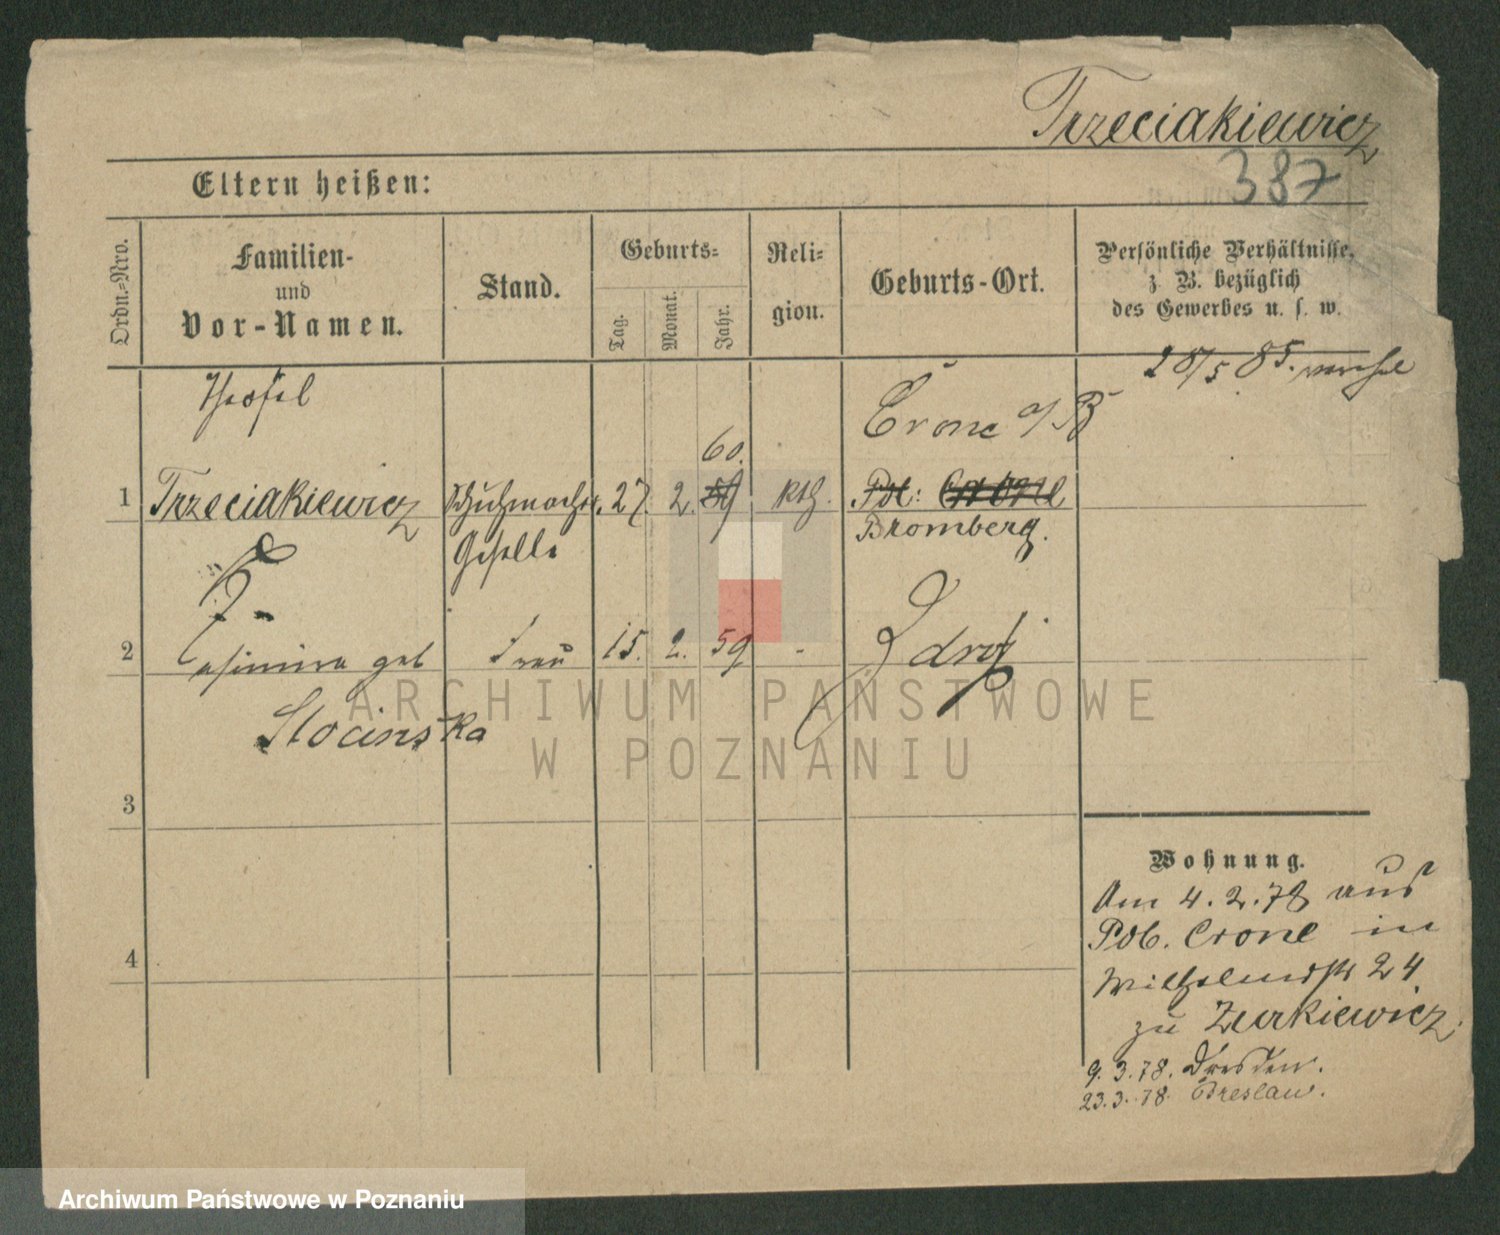 Trzeciakiewicz
387
Eltern heißen:
Ordn.-Nro.
Familien-
und
Vor-Namen.
Stand.
Geburts-
Tag.
Monat.
Jahr.
Reli-
gion.
Geburts-Ort.
Persönliche Verhältnisse,
z. B. bezüglich
des Gewerbes u. s. w.
28/5 85.
Theofil
Crone a/B
60.
1 Trzeciakiewicz Schuhmacher 27. 2. 59 kth. Pol: Crone
Geselle
Bromberg.
2 Casimira geb Frau 15. 2. 59 - Zdroj
Stocinska
3
4
Wohnung.
Am 4.2.78 aus
Pol. Crone in
Wilhelmstr 24
zu Zurkiewicz.
9.3.78. Dresden.
23.3.78 Breslau.
ARCHIWUM PAŃSTWOWE
W POZNANIU
Archiwum Państwowe w Poznaniu